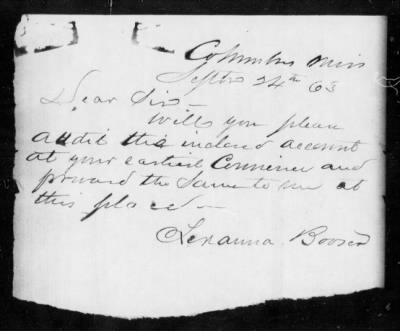 Columbus Miss
Septr 24th 63
Dear Sir
Will you please
audit this inclosed account
at your earliest Convience and
forward the Same to me at
this place
Lexanna Boozer